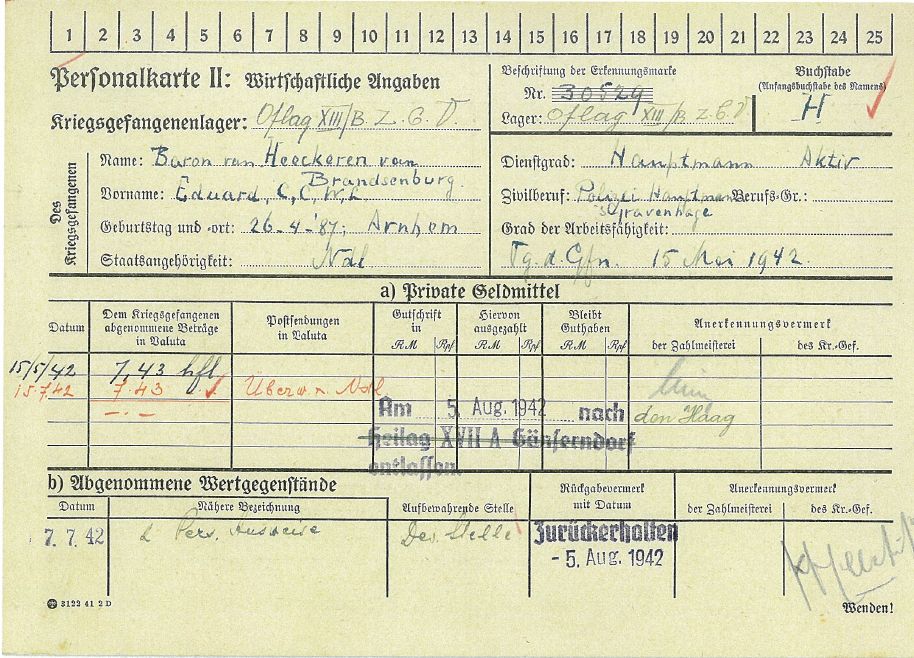 1 2 3 4 5 6 7 8 9 10 11 12 13 14 15 16 17 18 19 20 21 22 23 24 25
Personalkarte II: Wirtschaftliche Angaben
Kriegsgefangenenlager: Oflag XIII/B. Z. B. V.
Beschriftung der Erkennungsmarke
Nr. 30529
Lager: Oflag XIII/B. z. B. V
Buchstabe
(Anfangsbuchstabe des Namens)
H
Des Kriegsgefangenen
Name: Baron van Heeckeren van
Brandsenburg.
Vorname: Eduard, C, C, W, L.
Geburtstag und -ort: 26-4-'87; Arnhem
Staatsangehörigkeit: Ndl
Dienstgrad: Hauptmann Aktiv
Zivilberuf: Polizei Hauptmann Berufs-Gr.:
's Gravenhage
Grad der Arbeitsfähigkeit:
Tg. d. Gfn. 15 Mei 1942.
a) Private Geldmittel
Datum
Dem Kriegsgefangenen abgenommene Beträge in Valuta
Postsendungen in Valuta
Gutschrift in
RM Rpf
Hiervon ausgezahlt
RM Rpf
Bleibt Guthaben
RM Rpf
Anerkennungsvermerk
der Zahlmeisterei des Kr.-Gef.
15/5/42 7,43 hfl
15.7.42 7.43 Überw. n. Ndl.
-.-
Am 5. Aug. 1942 nach den Haag
Heilag XVII A Gänserndorf
entlassen.
b) Abgenommene Wertgegenstände
Datum
Nähere Bezeichnung
Aufbewahrende Stelle
Rückgabevermerk mit Datum
Anerkennungsvermerk
der Zahlmeisterei des Kr.-Gef.
7. 7. 42 Pers. Ausweise Stelle Zurückerhalten
- 5. Aug. 1942
3122 41 2 D
Wenden!